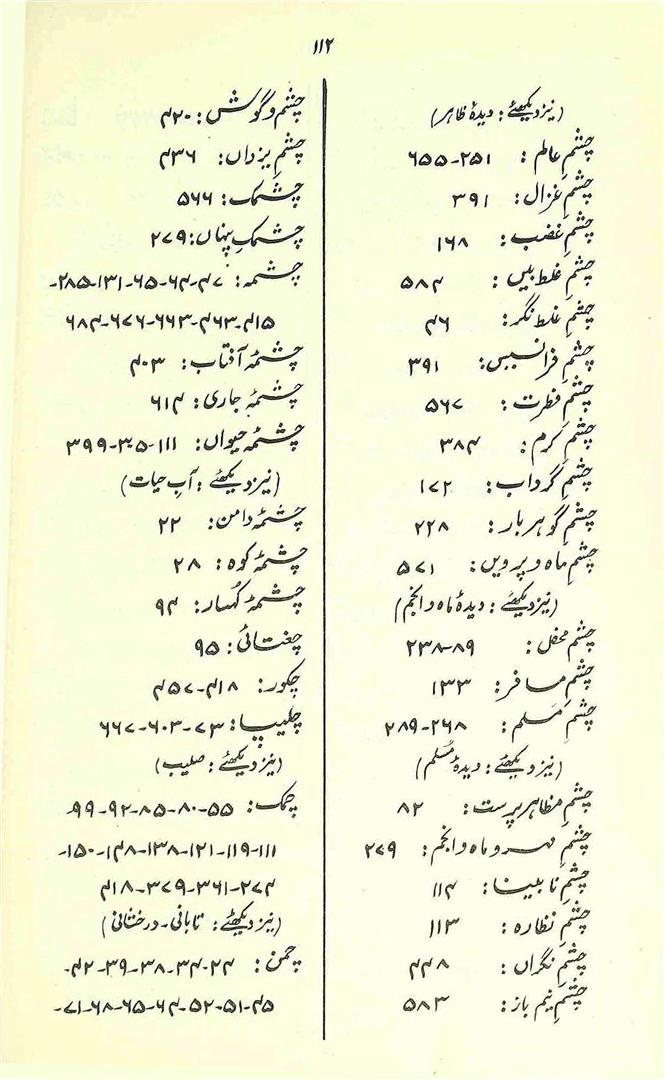 ۱۱۲
(نیز دیکھئے: دیدۂ ظاہر)
چشمِ عالم: ۲۵۱-۶۵۵
چشمِ غزال: ۳۹۱
چشمِ غضب: ۱۶۸
چشمِ غلط بیں: ۵۸۴
چشمِ غلط نگر: ۴۶
چشمِ فرانسیس: ۳۹۱
چشمِ فطرت: ۵۶۷
چشمِ کرم: ۳۸۴
چشمِ گرداب: ۱۷۲
چشمِ گوہر بار: ۲۲۸
چشمِ ماہ و پرویں: ۵۷۱
(نیز دیکھئے: دیدۂ ماہ و انجم)
چشمِ محفل: ۸۹-۲۳۸
چشمِ مسافر: ۱۳۳
چشمِ مسلم: ۲۶۸-۲۸۹
(نیز دیکھئے: دیدۂ مُسلم)
چشمِ مظاہر پرست: ۸۲
چشمِ مہر و ماہ و انجم: ۲۷۹
چشمِ نابینا: ۱۱۴
چشمِ نظارہ: ۱۱۳
چشمِ نگراں: ۴۴۸
چشمِ نیم باز: ۵۸۳
چشم و گوش: ۴۲۰
چشمِ یزداں: ۴۳۶
چشمک: ۵۶۶
چشمکِ پنہاں: ۲۷۹
چشمہ: ۴۷-۶۴-۶۵-۱۳۱-۲۸۵-
۴۱۵-۴۶۳-۶۶۳-۶۷۶-۶۸۴
چشمۂ آفتاب: ۴۰۳
چشمۂ جاری: ۶۱۴
چشمۂ حیواں: ۱۱۱-۳۰۵-۳۹۹
(نیز دیکھئے: آبِ حیات)
چشمۂ دامن: ۲۲
چشمۂ کوہ: ۲۸
چشمۂ کُہسار: ۹۴
چغتائی: ۹۵
چکور: ۴۱۸-۴۵۷
چلیپا: ۷۳-۶۰۳-۶۶۷
(نیز دیکھئے: صلیب)
چمک: ۵۵-۸۰-۸۵-۹۲-۹۹-
۱۱۱-۱۱۹-۱۲۱-۱۳۸-۱۴۸-۱۵۰-
۲۷۴-۳۶۱-۳۷۹-۴۱۸
(نیز دیکھئے: تابانی-درخشانی)
چمن: ۲۴-۳۴-۳۸-۳۹-۴۲-
۴۵-۵۱-۵۲-۶۴-۶۵-۶۸-۷۱-